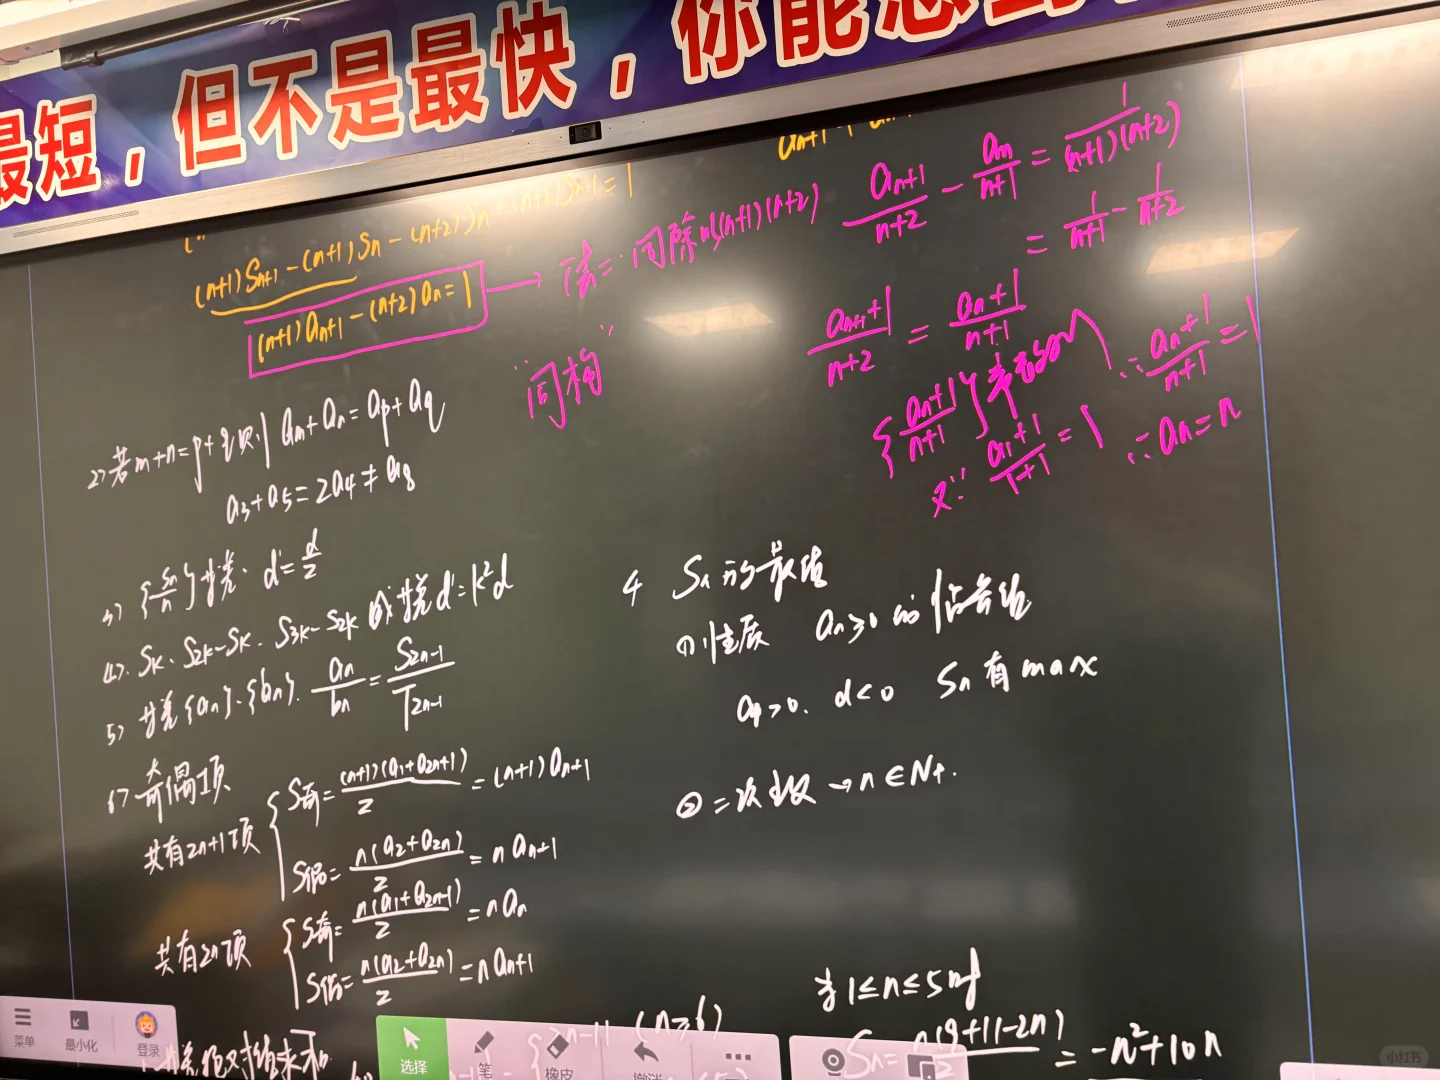 最短，但不是最快，你能想到
(n+1)Sn+1-(n+1)Sn-(n+2)Sn+(n+2)Sn-1=1
(n+1)an+1-(n+2)an=1
→ 法二:同除以(n+1)(n+2)
"同构"
an+1/n+2 - an/n+1 = 1/(n+1)(n+2)
= 1/n+1 - 1/n+2
an+1+1/n+2 = an+1/n+1
{an+1/n+1}常数列
∴ an+1/n+1 = 1
又∵ a1+1/1+1 = 1
∴ an=n
2) 若m+n=p+q则 am+an=ap+aq
a3+a5=2a4≠a8
3) {Sn/n}等差. d'=d/2
4). Sk、S2k-Sk、S3k-S2k 成等差 d'=k²d
5) 等差{an}、{bn}. an/bn = S2n-1/T2n-1
6) 奇偶项
共有2n+1项 { S奇=(n+1)(a1+a2n+1)/2=(n+1)an+1
S偶=n(a2+a2n)/2=n an+1
共有2n项 { S奇=n(a1+a2n-1)/2=nan
S偶=n(a2+a2n)/2=nan+1
4 Sn的最值
①性质 an≥0的临界值
a1>0. d<0 Sn有max
②二次函数→n∈N+.
当1≤n≤5时
Sn=n(9+11-2n)/2=-n²+10n
2n-11 (n≥6)
菜单
最小化
登录
选择
笔
橡皮
撤消
小红书